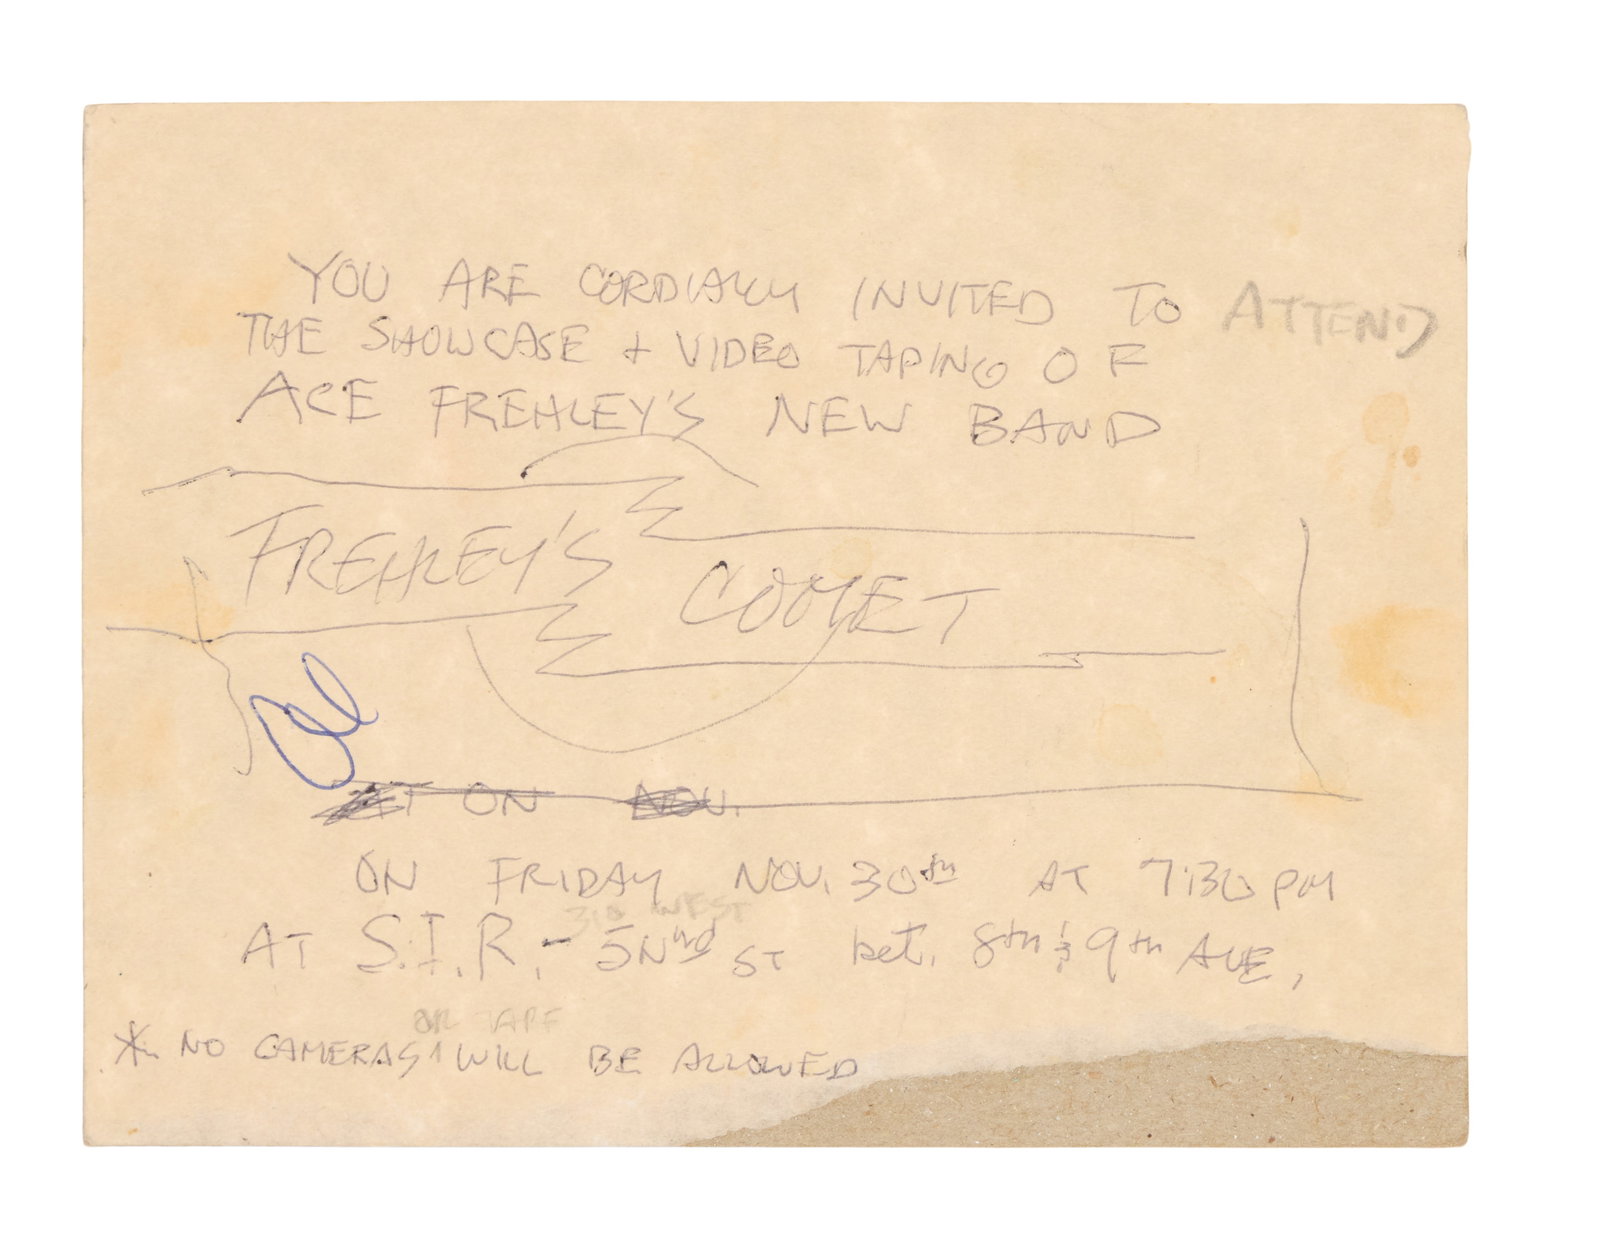 YOU ARE CORDIALLY INVITED TO ATTEND
THE SHOWCASE + VIDEO TAPING OF
ACE FREHLEY'S NEW BAND
FREHLEY'S
COMET
AT ON NOV.
ON FRIDAY NOV. 30th AT 7:30 PM
310 WEST
AT S.I.R. - 5Nnd ST bet. 8th & 9th AVE,
OR TAPE
* NO CAMERAS WILL BE ALLOWED